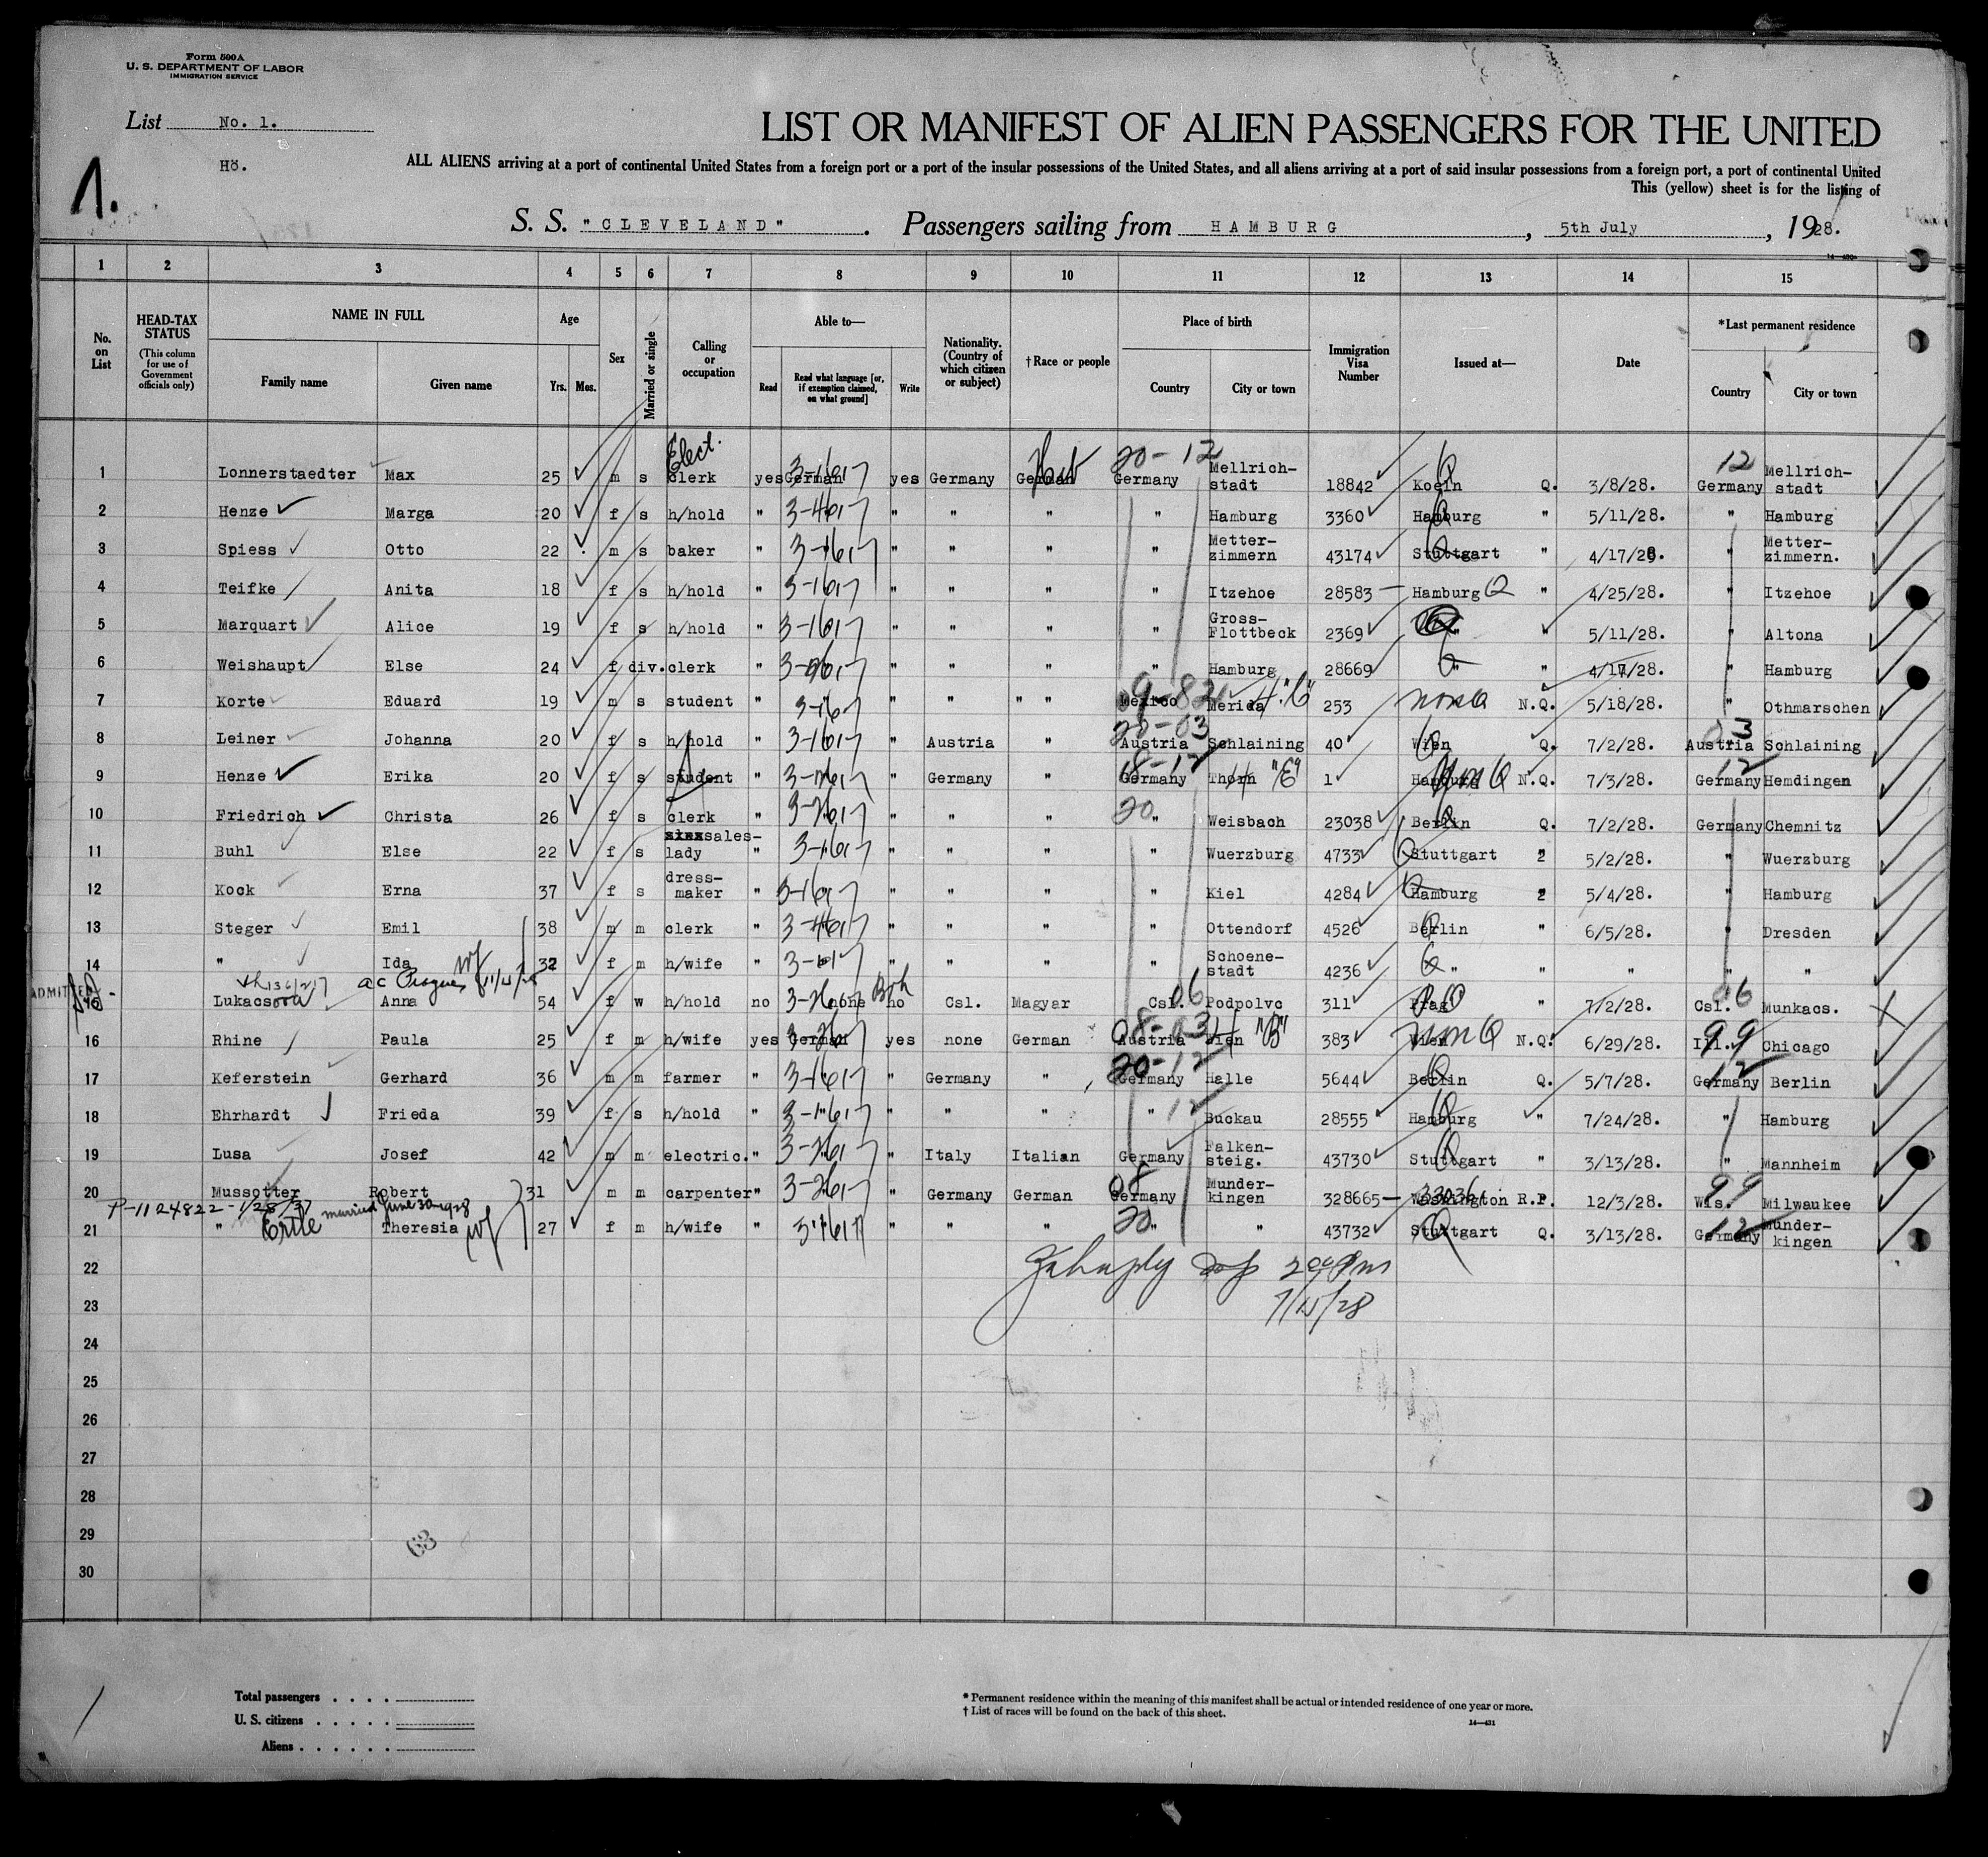 Form 500A
U. S. DEPARTMENT OF LABOR
IMMIGRATION SERVICE
List No. 1.
H8.
1.
LIST OR MANIFEST OF ALIEN PASSENGERS FOR THE UNITED
ALL ALIENS arriving at a port of continental United States from a foreign port or a port of the insular possessions of the United States, and all aliens arriving at a port of said insular possessions from a foreign port, a port of continental United
This (yellow) sheet is for the listing of
S. S. "CLEVELAND". Passengers sailing from HAMBURG, 5th July, 1928.
1 2 3 4 5 6 7 8 9 10 11 12 13 14 15
No. on List
HEAD-TAX STATUS (This column for use of Government officials only)
NAME IN FULL Family name Given name
Age Yrs. Mos.
Sex
Married or single
Calling or occupation
Able to— Read Read what language [or, if exemption claimed, on what ground] Write
Nationality. (Country of which citizen or subject)
†Race or people
Place of birth Country City or town
Immigration Visa Number
Issued at—
Date
*Last permanent residence Country City or town
Elect. 20-12 12
1 Lonnerstaedter Max 25 m s clerk yes German yes Germany German Germany Mellrich-stadt 18842 Koeln Q. 3/8/28. Germany Mellrich-stadt
2 Henze Marga 20 f s h/hold " " " " " Hamburg 3360 Hamburg " 5/11/28. " Hamburg
3 Spiess Otto 22 m s baker " " " " " Metter-zimmern 43174 Stuttgart " 4/17/28. " Metter-zimmern.
4 Teifke Anita 18 f s h/hold " 3-1617 " " " " Itzehoe 28583 Hamburg Q " 4/25/28. " Itzehoe
5 Marquart Alice 19 f s h/hold " 3-1617 " " " " Gross-Flottbeck 2369 " " 5/11/28. " Altona
6 Weishaupt Else 24 f div. clerk " " " " " Hamburg 28669 " " 4/17/28. " Hamburg
7 Korte Eduard 19 m s student " " " " " Mexico Merida 253 N.Q. 5/18/28. " Othmarschen
8 Leiner Johanna 20 f s h/hold " 3-1617 " Austria " Austria Schlaining 40 Wien Q. 7/2/28. Austria Schlaining
9 Henze Erika 20 f s student " " Germany " Germany Thorn "E" 1 Hamburg N.Q. 7/3/28. Germany Hemdingen
10 Friedrich Christa 26 f s clerk " " " " " Weisbach 23038 Berlin Q. 7/2/28. Germany Chemnitz
11 Buhl Else 22 f s sales-lady " " " " " Wuerzburg 4733 Stuttgart 2 5/2/28. " Wuerzburg
12 Kock Erna 37 f s dress-maker " " " " " Kiel 4284 Hamburg 2 5/4/28. " Hamburg
13 Steger Emil 38 m m clerk " " " " " Ottendorf 4526 Berlin " 6/5/28. " Dresden
14 " Ida wf 32 f m h/wife " " " " " Schoene-stadt 4236 " " " " "
ADMITTED
15 Lukacsova Anna 54 f w h/hold no none no Csl. Magyar Csl. Podpolvc 311 Prag " 7/2/28. Csl. Munkacs.
16 Rhine Paula 25 f m h/wife yes German yes none German Austria Wien "B" 383 Wien N.Q. 6/29/28. Ill. Chicago
17 Keferstein Gerhard 36 m m farmer " " Germany " Germany Halle 5644 Berlin Q. 5/7/28. Germany Berlin
18 Ehrhardt Frieda 39 f s h/hold " " " " " Buckau 28555 Hamburg " 7/24/28. " Hamburg
19 Lusa Josef 42 m m electric. " " Italy Italian Germany Falken-steig. 43730 Stuttgart " 3/13/28. " Mannheim
20 Mussotter Robert 31 m m carpenter " " Germany German Germany Munder-kingen 328665 Washington R.P. 12/3/28. Wis. Milwaukee
P-1124822-1/28/37 married June 30 1928
21 " Ertle Theresia wf 27 f m h/wife " " " " " " 43732 Stuttgart Q. 3/13/28. Germany Munder-kingen
22
23 7/15/28
24
25
26
27
28
29
30
63
Total passengers . . . .
U. S. citizens . . . . .
Aliens . . . . . .
* Permanent residence within the meaning of this manifest shall be actual or intended residence of one year or more.
† List of races will be found on the back of this sheet.
14—431